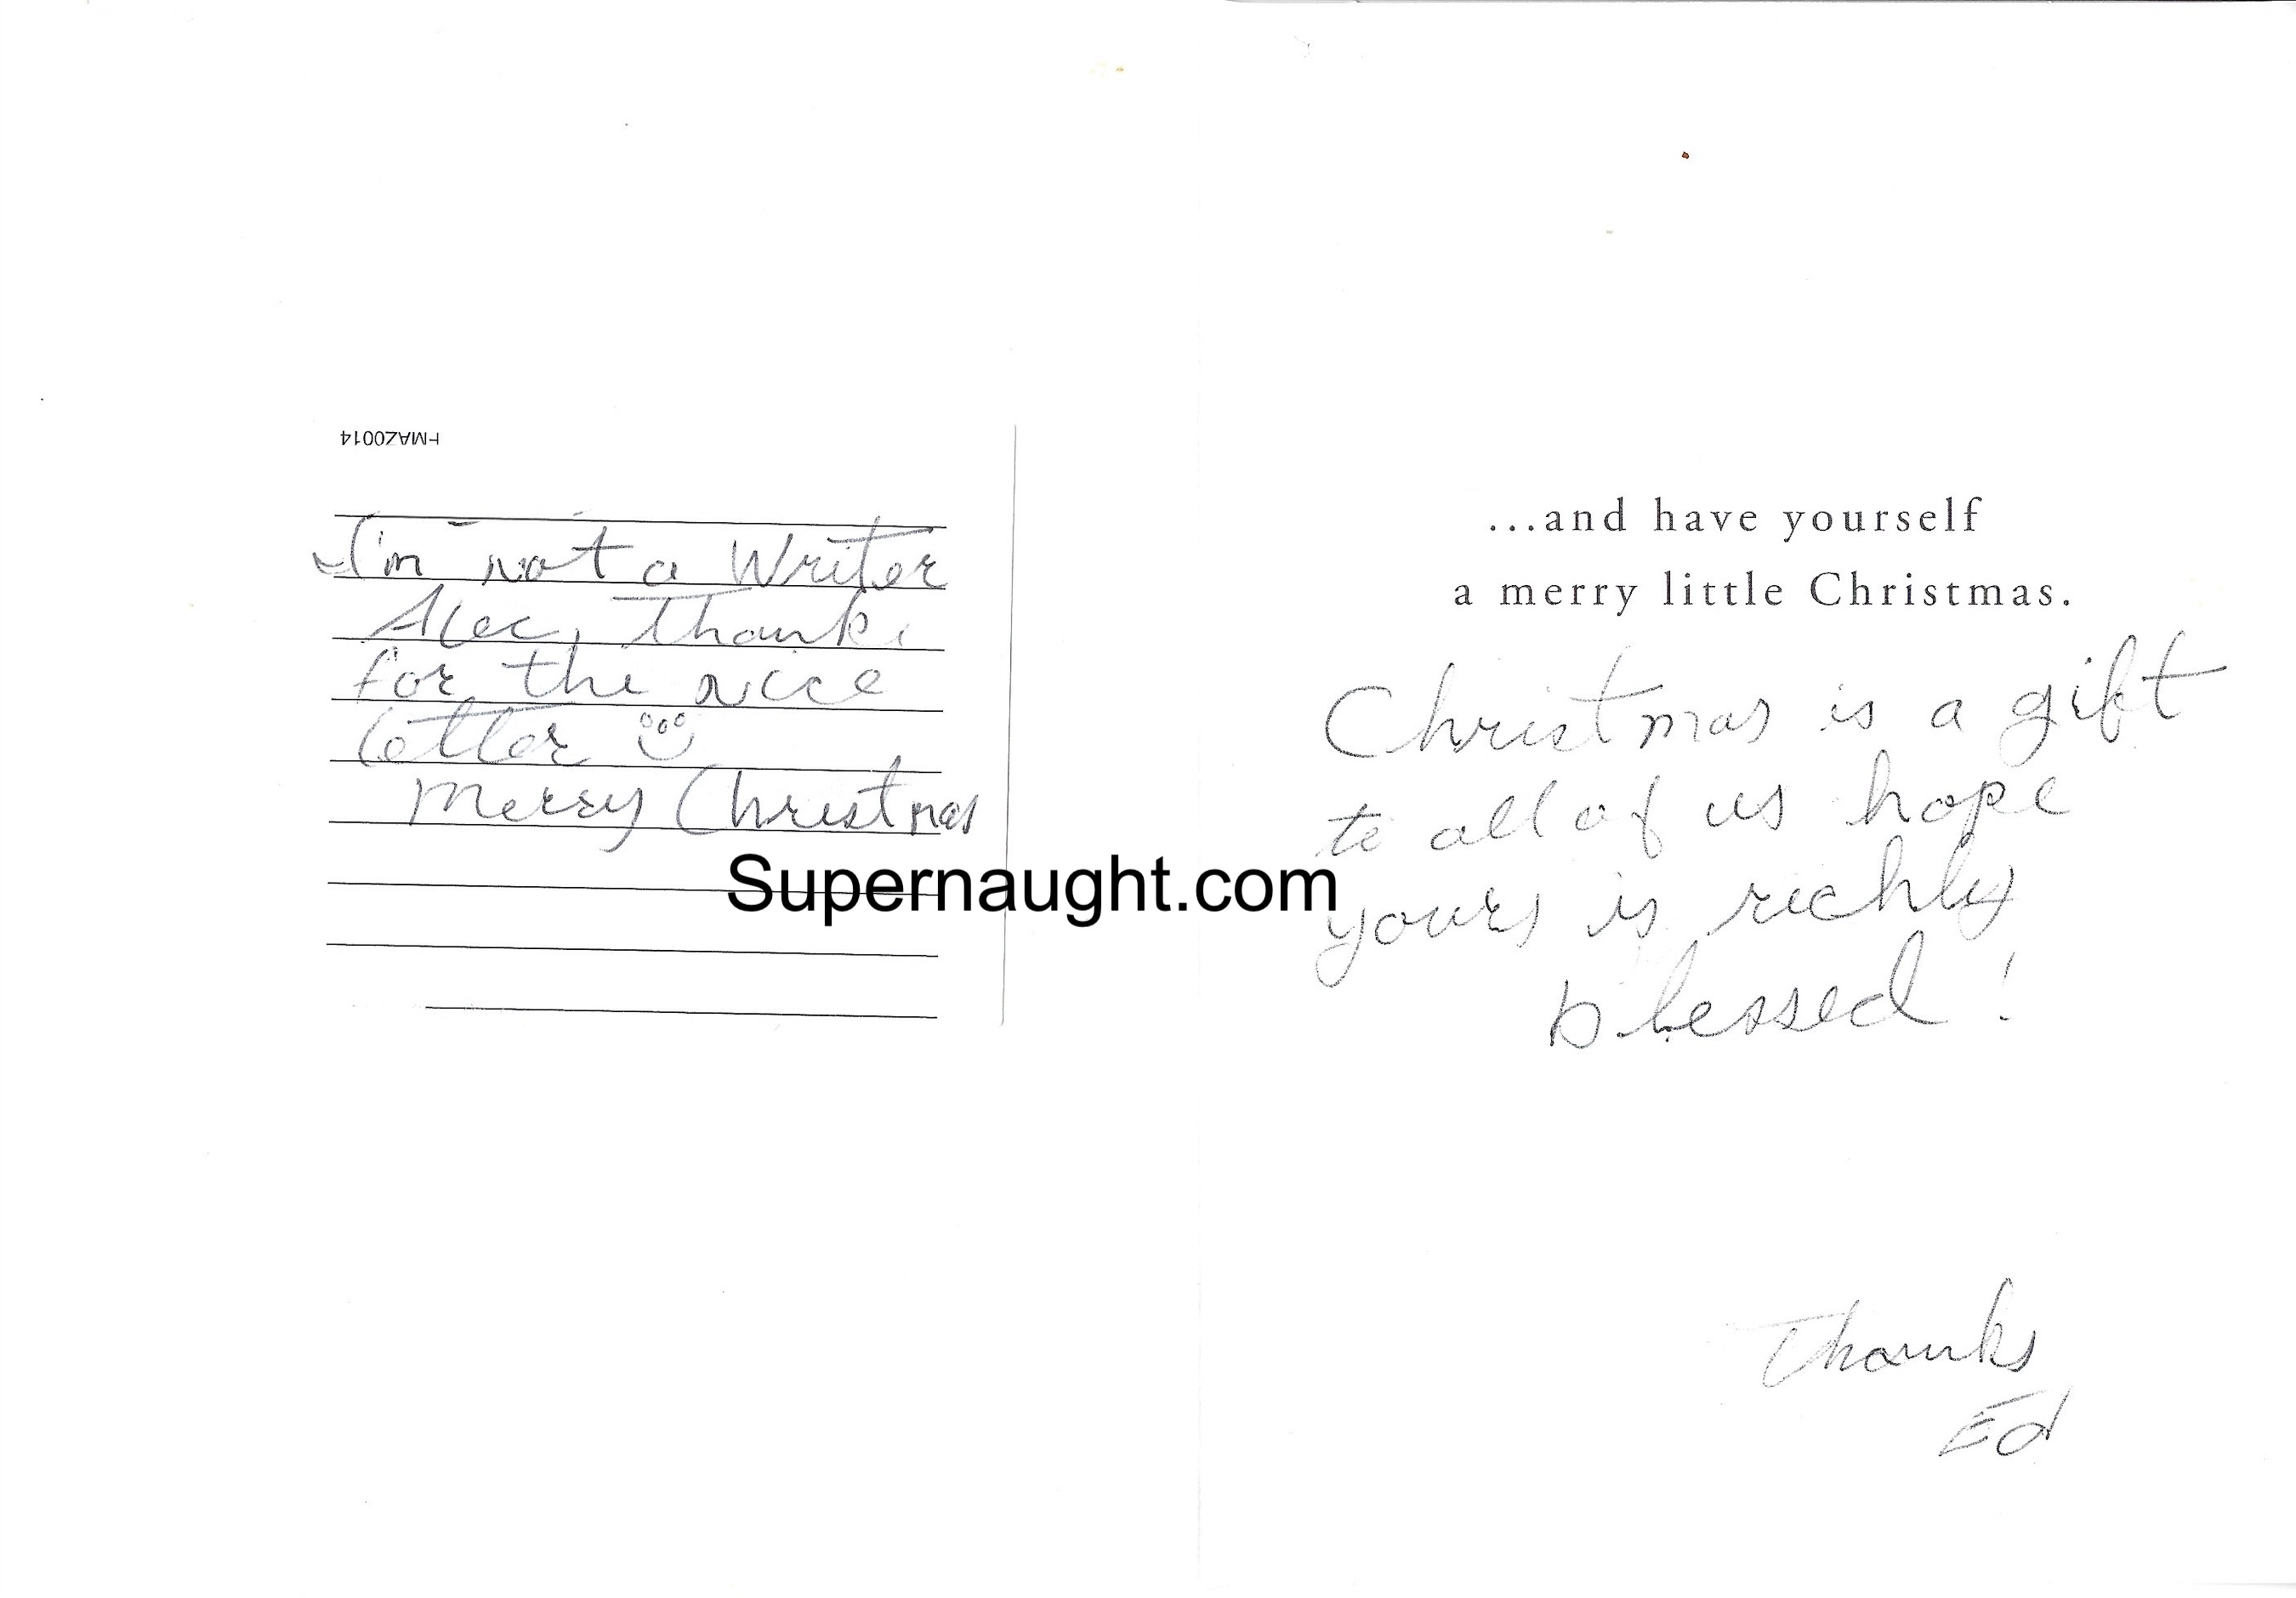 HMAZ0014
I'm not a Writer
Alec, thanks
for the nice
letter
Merry Christmas
Supernaught.com
...and have yourself
a merry little Christmas.
Christmas is a gift
to all of us hope
yours is richly
blessed!
Thanks
Ed